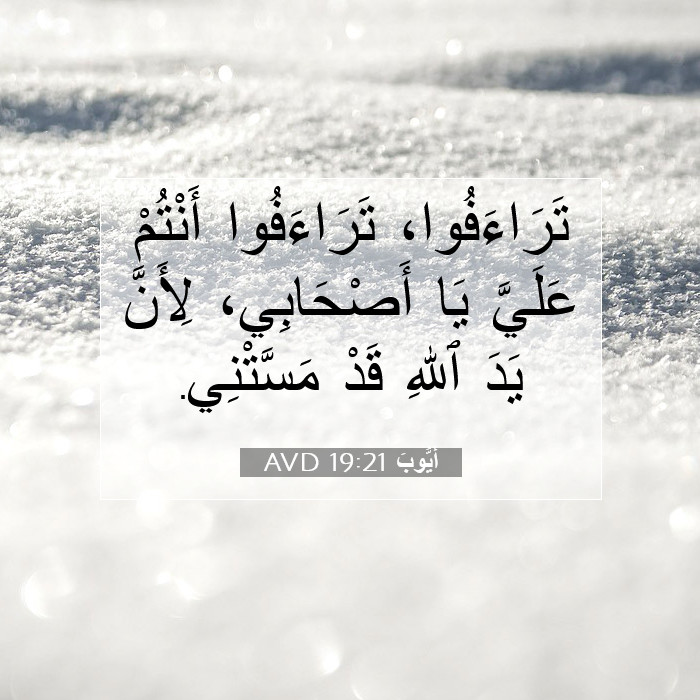 تَرَاءَفُوا، تَرَاءَفُوا أَنْتُمْ
عَلَيَّ يَا أَصْحَابِي، لِأَنَّ
يَدَ ٱللهِ قَدْ مَسَّتْنِي.
أَيُّوبَ 19:21 AVD